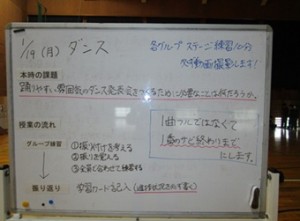 1/19(月) ダンス
各グループ ステージ練習10分
次回動画撮影します!
本時の課題
踊りやすい雰囲気のダンス発表会をつくるために必要なことは何だろうか。
授業の流れ
グループ練習
①振り付けを考える
②振りを覚える
③全員で合わせて練習する
1曲フルではなくて
1番のサビ終わりまで
にします。
振り返り
学習カード記入